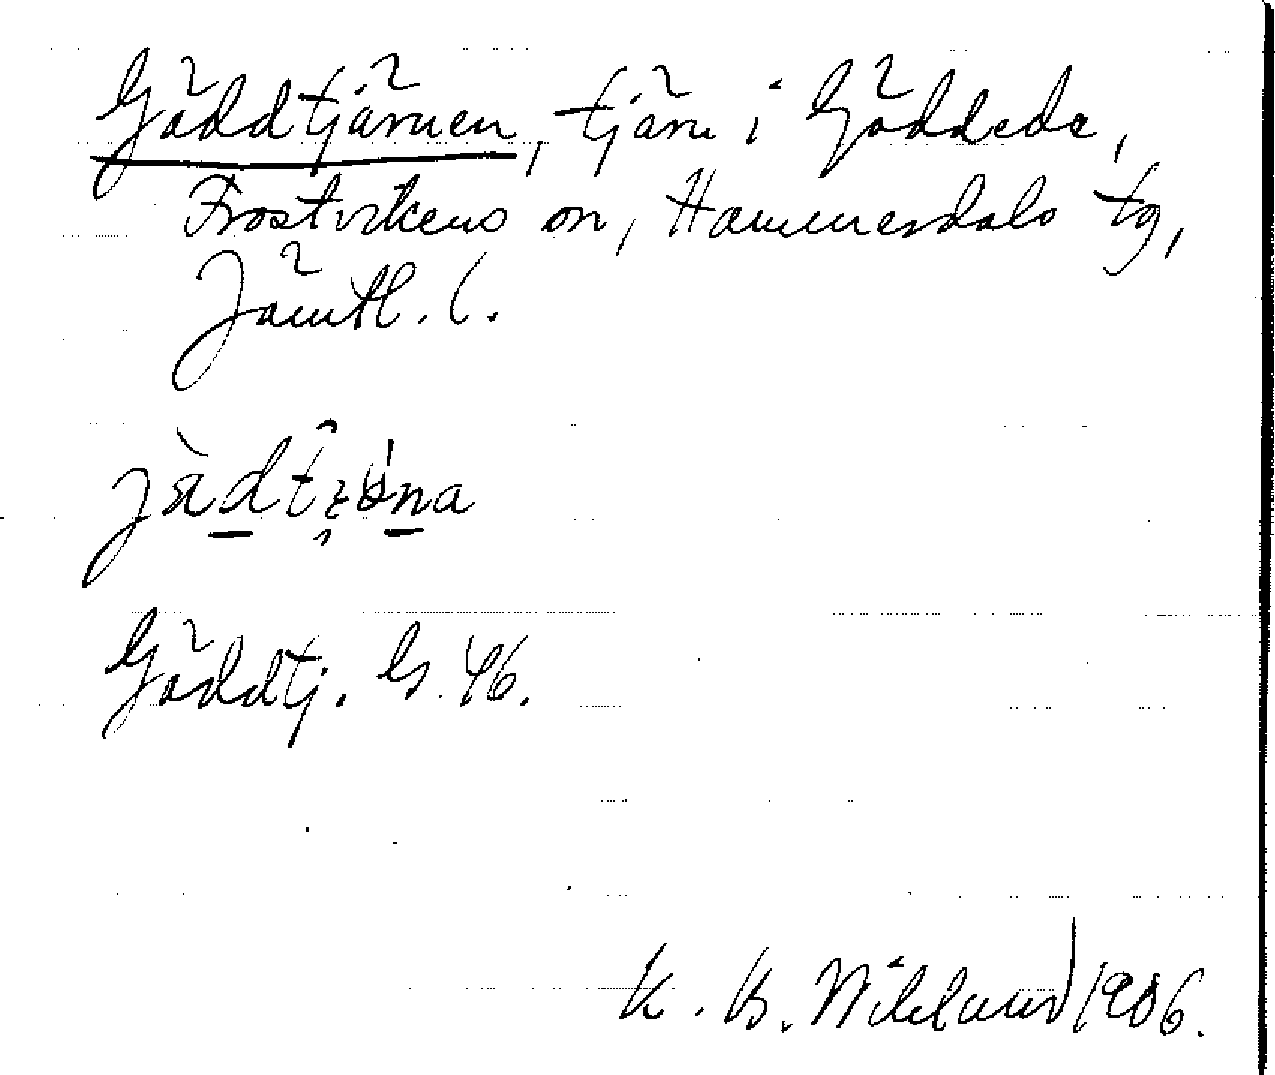 Gäddtjärnen, tjärn i Gäddede,
Frostvikens sn, Hammerdals tg,
Jämtl. l.
Gäddtj. G. 46.
K. B. Wiklund 1906.